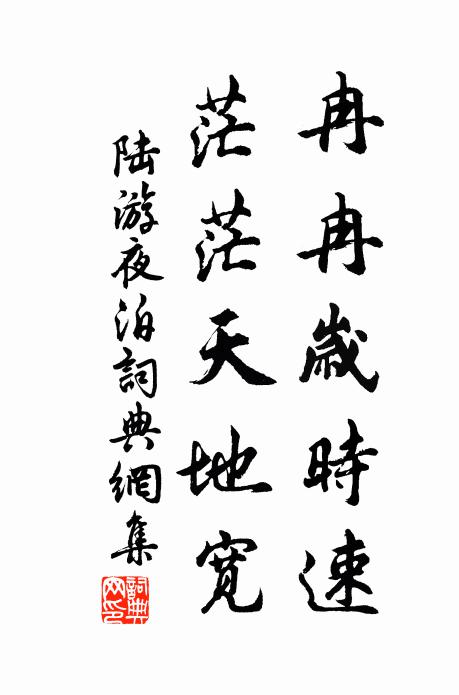 冉冉歲時速
茫茫天地寬
陸游夜泊詞典網集
詞典网印